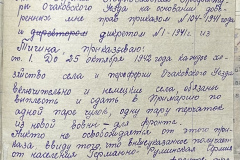 рю Очаковского Уезда на основании добве-
ренных мне прав приказом №104-1941 года
и директором дикретом №1-1941г из
Тигина, приказываю:
от. 1. До 25 октября 1942 года каждое хо-
зяйство села и территории Очаковского Уезда
включительно и немецкие села, обязано
выплесть и сдать в Примарию по
одной паре
из новой для фронта.
Никто не освобождается от этого при-
каза ввиду того, что вышеуказанное получает
от населения Германо-Румынская Армия